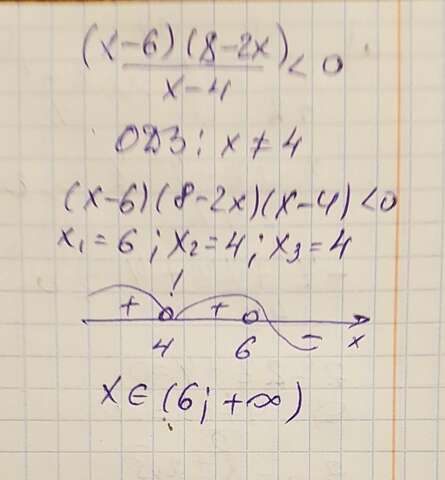 (x-6)(8-2x)
x-4 < 0
ОДЗ: x ≠ 4
(x-6)(8-2x)(x-4) < 0
x₁ = 6 ; x₂ = 4 ; x₃ = 4
!
+ + -
4 6 x
x ∈ (6; +∞)